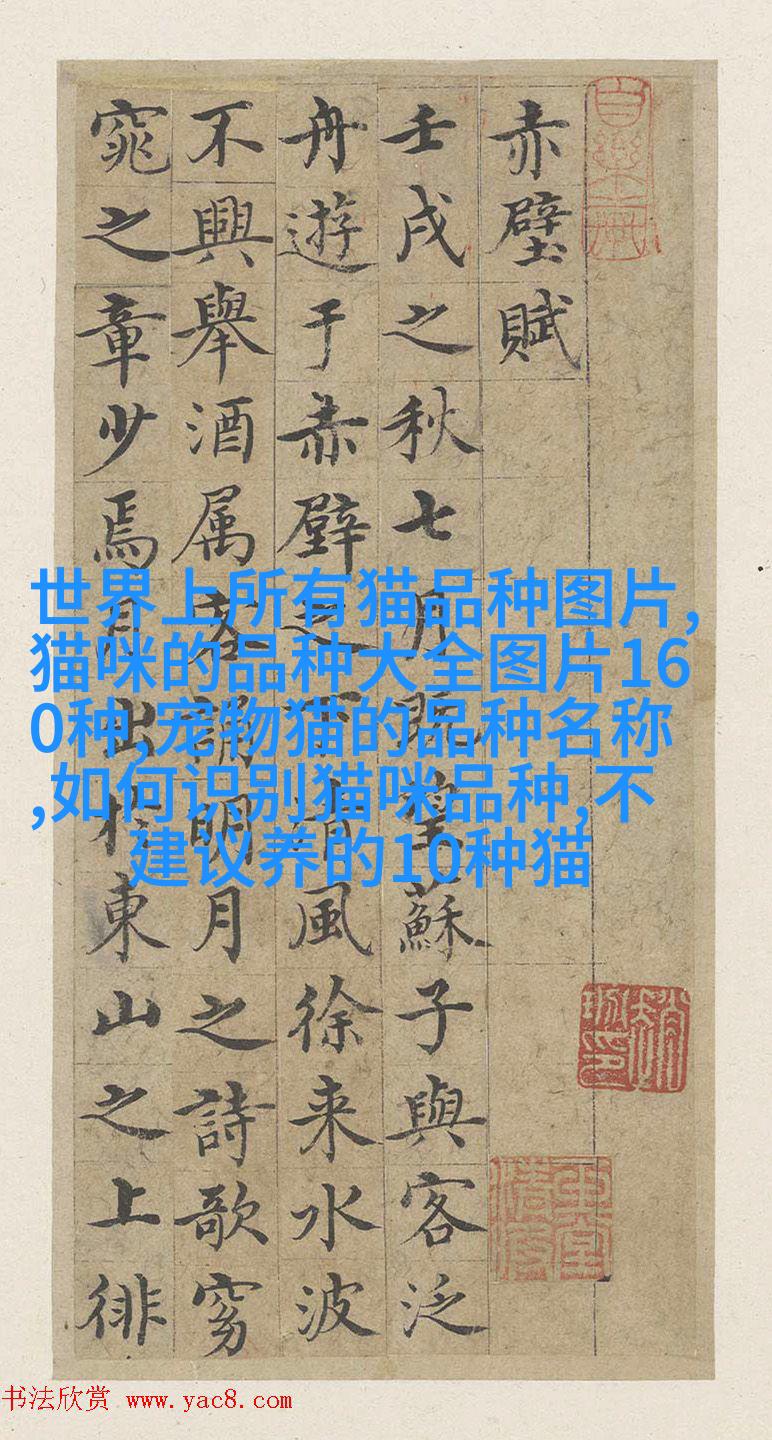 赤壁賦
壬戌之秋七月既望蘇子與客泛
舟遊于赤壁之下清風徐来水波
不興舉酒属客誦明月之詩歌窈
窕之章少焉月出於東山之上徘
世界上所有猫品种图片,
猫咪的品种大全图片16
0种,宠物猫的品种名称
,如何识别猫咪品种,不
建议养的10种猫
书法欣赏 www.yac8.com